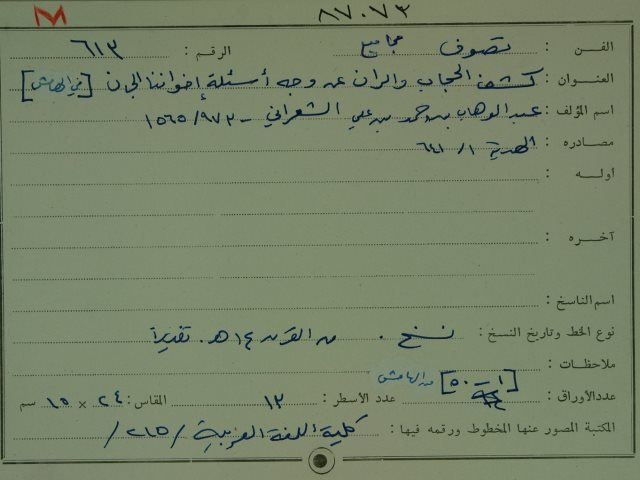 ٨٧٠٧٣
الفن : تصوف مجاميع الرقم : ٦١٣
العنوان : كشف الحجاب والران عن وجه أسئلة إخواننا الجان [في الهامش]
اسم المؤلف : عبد الوهاب بن أحمد بن علي الشعراني - ٩٧٣/١٥٦٥
مصادره : الهدية ١/٦٤١
أوله :
آخره :
اسم الناسخ :
نوع الخط وتاريخ النسخ : نسخ . من القرن ١٤ هـ. تقديراً
ملاحظات :
عدد الأوراق : [١-٥٠] من الهامش عدد الأسطر : ١٣ القاس : ٢٤ × ١٥ سم
المكتبة المصور عنها المخطوط ورقمه فيها : كلية اللغة العربية /٢١٥/